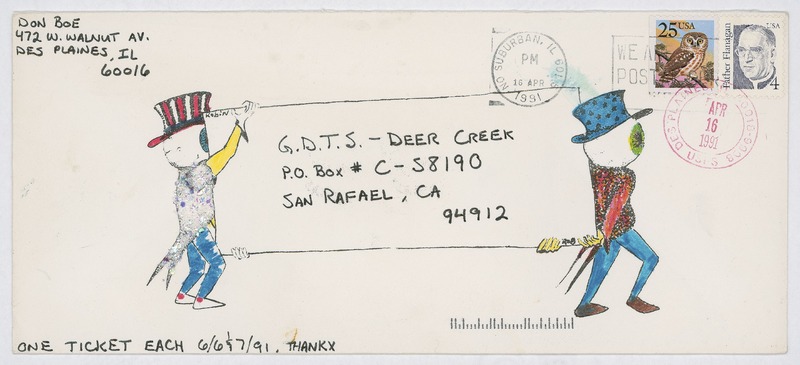 DON BOE
472 W. WALNUT AV.
DES PLAINES, IL
60016
NO SUBURBAN, IL
PM
16 APR
1991
WE AR
POST
25 USA
Father Flanagan
USA
4
DES PLAINES
APR
16
1991
USPS
ROBIN
G.D.T.S. - DEER CREEK
P.O. BOX # C-S8190
SAN RAFAEL, CA
94912
ONE TICKET EACH 6/6 & 7/91. THANKX